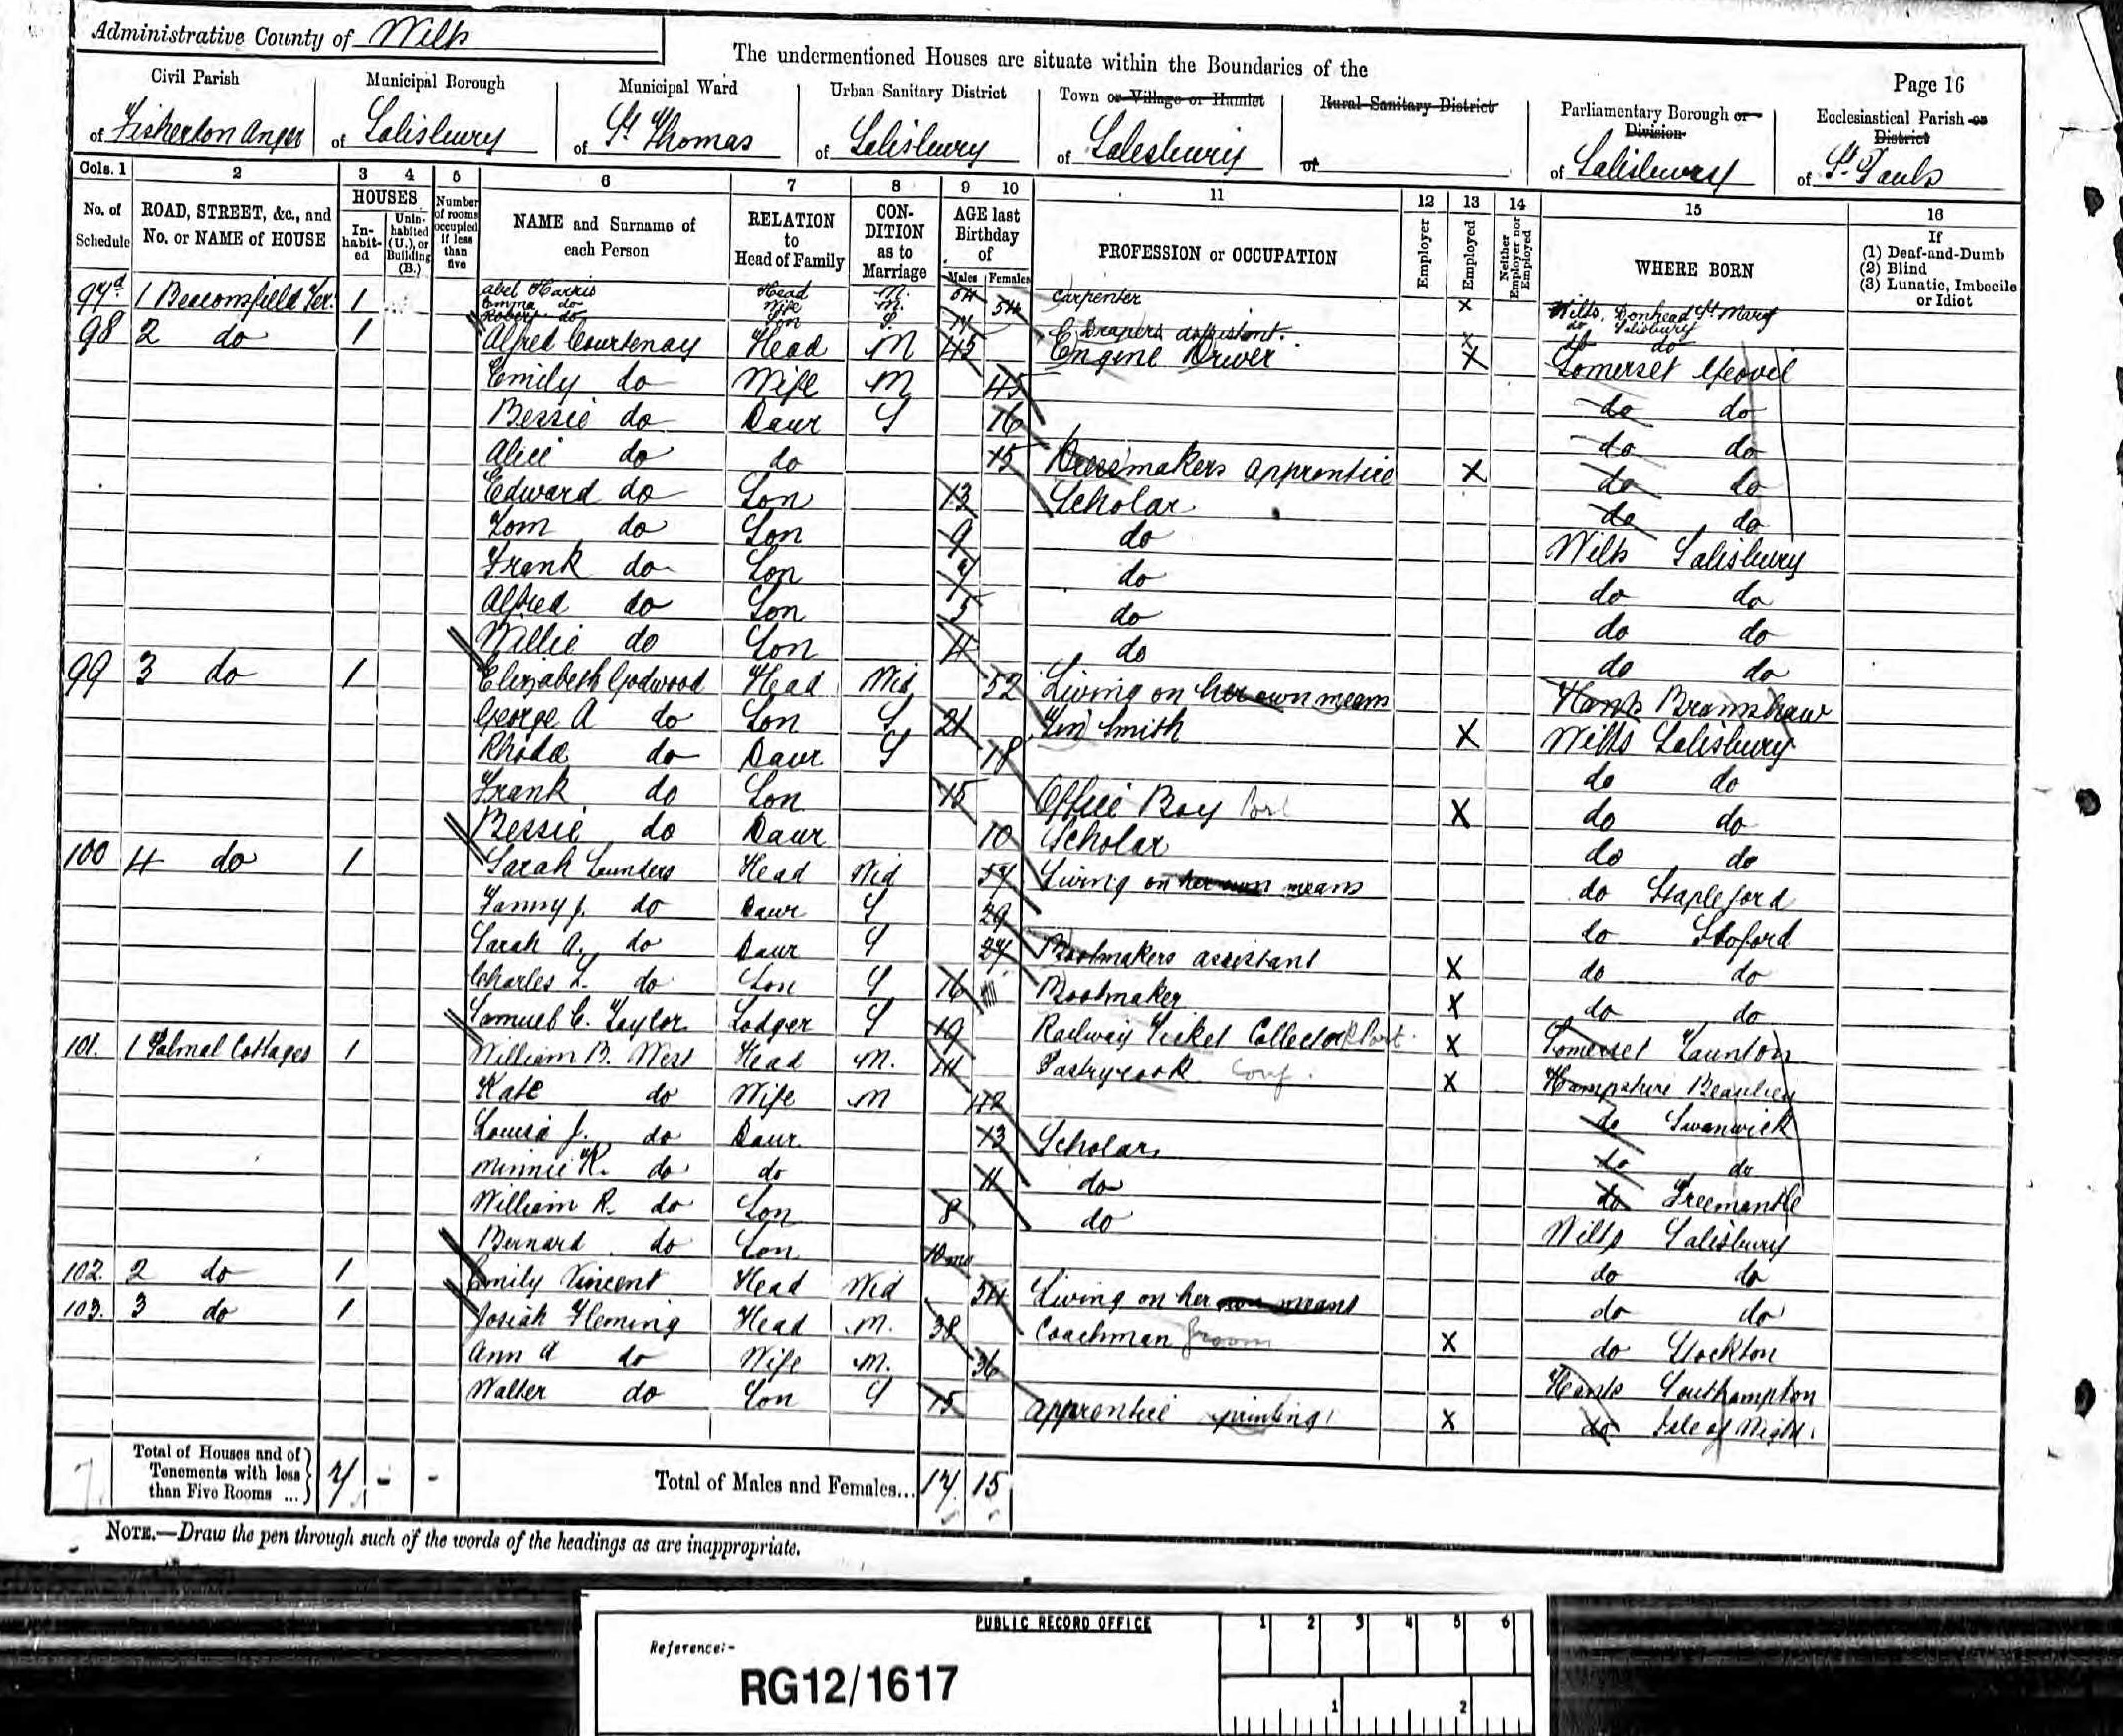 Administrative County of Wilts
The undermentioned Houses are situate within the Boundaries of the
Page 16
Civil Parish
Municipal Borough
Municipal Ward
Urban Sanitary District
Town or Village or Hamlet
Rural Sanitary District
Parliamentary Borough or Division
Ecclesiastical Parish or District
of Fisherton Anger
of Salisbury
of St Thomas
of Salisbury
of Salisbury
of
of Salisbury
of St Pauls
Cols. 1 2 3 4 5 6 7 8 9 10 11 12 13 14 15 16
No. of Schedule
ROAD, STREET, &c., and No. or NAME of HOUSE
HOUSES
In-habit-ed
Unin-habited (U.), or Building (B.)
Number of rooms occupied if less than five
NAME and Surname of each Person
RELATION to Head of Family
CON-DITION as to Marriage
AGE last Birthday of
Males Females
PROFESSION or OCCUPATION
Employer
Employed
Neither Employer nor Employed
WHERE BORN
If
(1) Deaf-and-Dumb
(2) Blind
(3) Lunatic, Imbecile or Idiot
97a 1 Beaconsfield Ter. 1 Abel Harris Head M. 54 Carpenter X Wilts, Donhead St Mary
Emma do Wife M. 54 do Salisbury
Robert do Son S. Drapers assistant. X do do
98 2 do 1 Alfred Courtenay Head M 45 Engine Driver X Somerset Yeovil
Emily do Wife M 45 do do
Bessie do Daur S 16 do do
Alice do do 15 Dressmakers apprentice X do do
Edward do Son 13 Scholar do do
Tom do Son 9 do Wilts Salisbury
Frank do Son 7 do do do
Alfred do Son 5 do do do
Willie do Son 4 do do do
99 3 do 1 Elizabeth Godwood Head Wid 52 Living on her own means Hants Bramshaw
George A do Son S 21 Tin Smith X Wilts Salisbury
Rhoda do Daur S 18 do do
Frank do Son 15 Office Boy X do do
Bessie do Daur 10 Scholar do do
100 4 do 1 Sarah Saunders Head Wid 57 Living on her own means do Stapleford
Fanny J. do Daur S 29 do Stoford
Sarah A. do Daur S 27 Bootmakers assistant X do do
Charles L. do Son S 16 Bootmaker X do do
Samuel C. Taylor Lodger S 19 Railway Ticket Collector X Somerset Taunton
101. 1 Palmal Cottages 1 William B. West Head M. 44 Pastrycook Conf. X Hampshire Beaulieu
Kate do Wife M 42 do Swanwick
Louisa J. do Daur. 13 Scholar do do
Minnie K. do do 11 do do Freemantle
William R. do Son 8 do Wilts Salisbury
Bernard do Son 10 mo do do
102. 2 do 1 Emily Vincent Head Wid 54 Living on her own means do do
103. 3 do 1 Josiah Fleming Head M. 38 Coachman Groom X do Stockton
Ann A do Wife M. 36 Hants Southampton
Walter do Son S 15 Apprentice printing X do Isle of Wight.
Total of Houses and of Tenements with less than Five Rooms ... 7 - -
Total of Males and Females... 17 15
NOTE.—Draw the pen through such of the words of the headings as are inappropriate.
PUBLIC RECORD OFFICE
1 2 3 4 5 6
Reference:-
RG12/1617
1 2